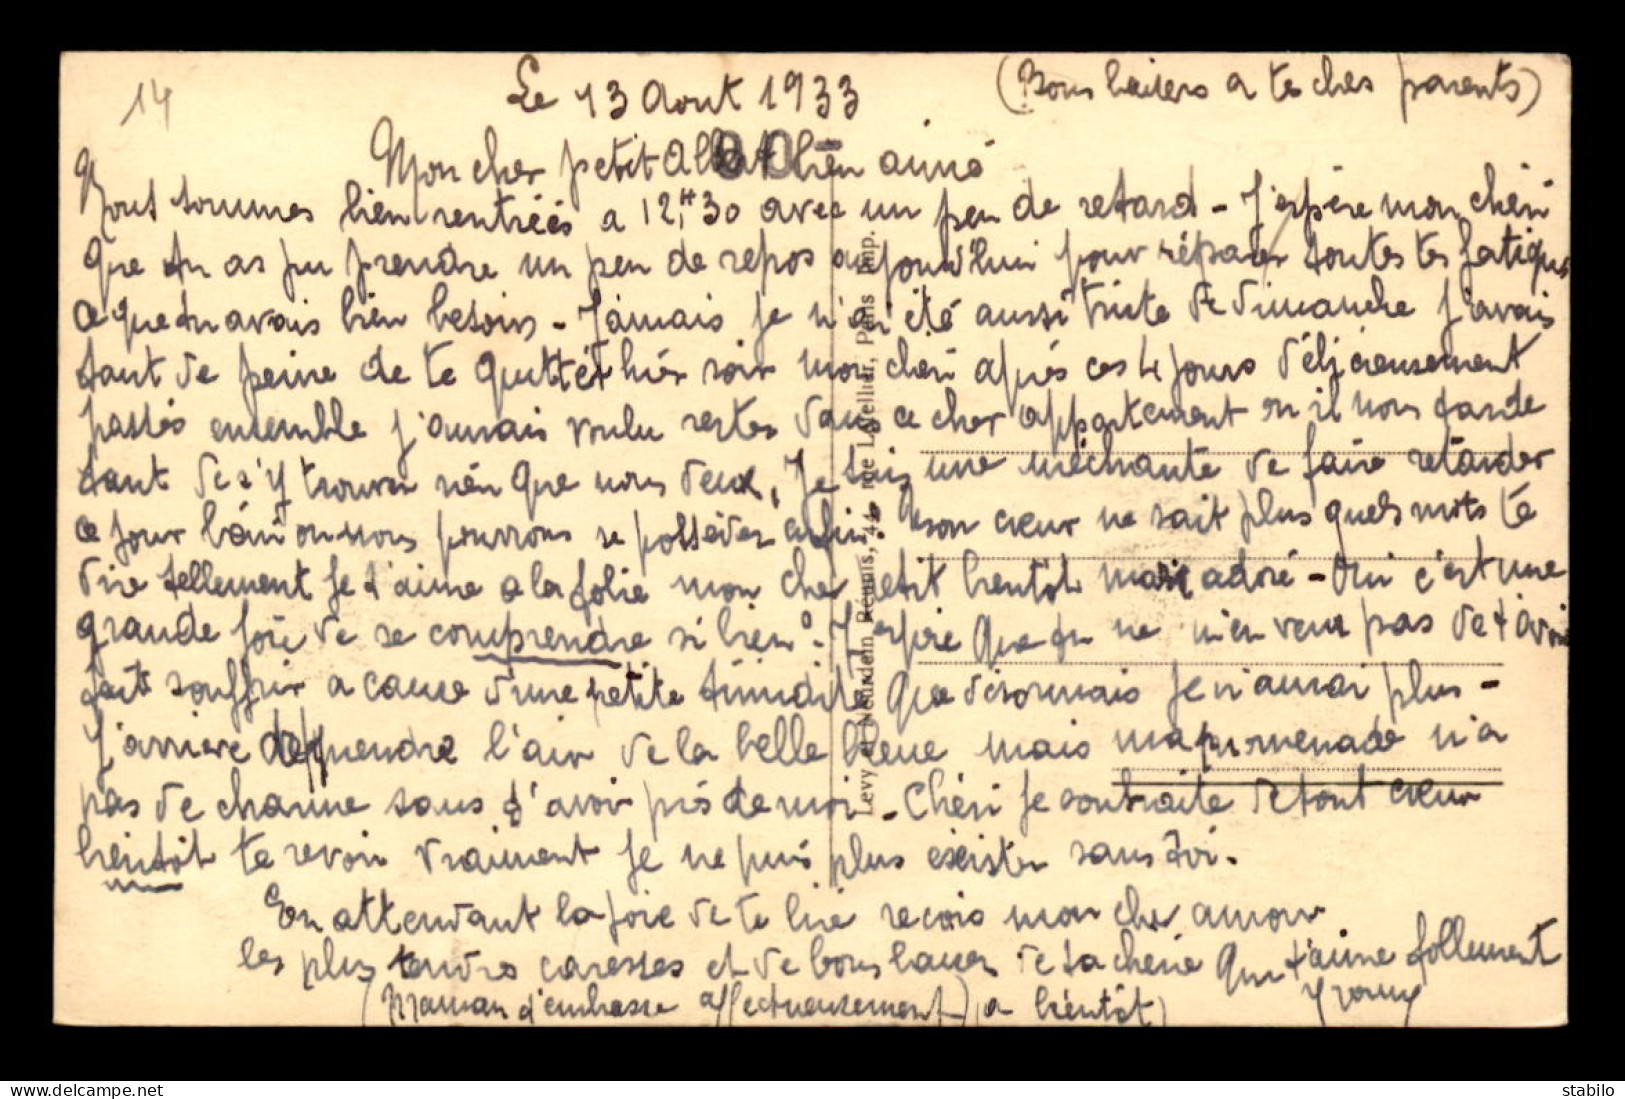 14
Le 13 Aout 1933
(Bons baisers a tes chers parents)
Mon cher petit Albert bien aimé
Nous sommes bien rentrées a 12H30 avec un peu de retard - J'espère mon chéri
que tu as pu prendre un peu de repos aujourd'hui pour réparer toutes tes fatigues
ce que tu avais bien besoin - Jamais je n'ai été aussi triste de dimanche j'avais
tant de peine de te quitter hièr soir mon chéri après ces 4 jours délicieusement
passés ensemble j'aurais voulu rester dans ce cher appartement ou il nous tarde
tant de s'y trouver rien que nous deux, Je suis une méchante de faire retarder
ce jour béni ou nous pourrons se posséder enfin. Mon cœur ne sait plus quels mots te
dire tellement je t'aime a la folie mon cher petit bientôt mari adoré - Oui c'est une
grande joie de se comprendre si bien. J'espère que tu ne m'en veux pas de t'avoir
fait souffrir a cause d'une petite timidité que désormais je n'aurai plus -
J'arrive de prendre l'air de la belle bleue mais ma promenade n'a
pas de charme sans t'avoir près de moi - Chéri je souhaite de tout cœur
bientôt te revoir vraiment je ne puis plus éxister sans toi.
En attendant la joie de te lire recois mon cher amour
les plus tendres caresses et de bons baisers de ta chérie qui t'aime follement
(Maman t'embrasse affectueusement) a bientôt Yvonny
Levy et Neurdein Réunis, 44, rue Letellier, Paris Imp.
www.delcampe.net
stabilo